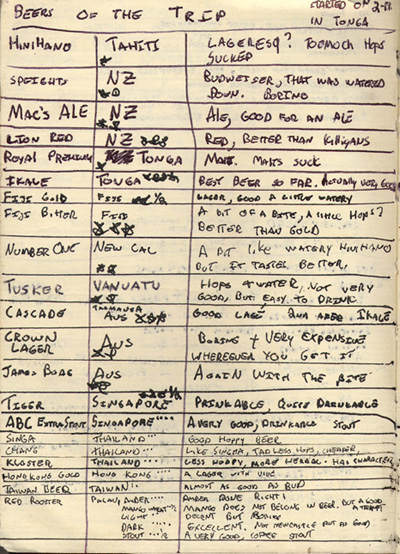 BEERS OF THE TRIP
STARTED ON 2-11
IN TONGA
HINIHANO TAHITI LAGERESQ? TOOMOCH HOPS
SUCKED
SPEIGHTS NZ BUDWEISER, THAT WAS WATERED
DOWN. BORING
MAC'S ALE NZ ALE, GOOD FOR AN ALE
LION RED NZ RED, BETTER THAN KILLIGANS
ROYAL PREMIUM TONGA MALT. MALTS SUCK
IKALE TONGA BEST BEER SO FAR. ACTUALLY VERY GOOD
FIJI GOLD FIJI LAGER, GOOD A LITTLE WATERY
FIJI BITTER FIJI A BIT OF A BITE, A LITTLE HOPS?
BETTER THAN GOLD
NUMBER ONE NEW CAL A BIT LIKE WATERY HINIHANO
BUT IT TASTES BETTER.
TUSKER VANUATU HOPS + WATER, NOT VERY
GOOD, BUT EASY TO DRINK
CASCADE TASMANIA
AUS GOOD LAGE IKALE
CROWN
LAGER AUS BORING + VERY EXPENSIVE
WHEREVER YOU GET IT
JAMES BOAG AUS AGAIN WITH THE BITE
TIGER SINGAPORE DRINKABLE, QUITE DRINKABLE
ABC EXTRA STOUT SINGAPORE A VERY GOOD, DRINKABLE STOUT
SINGA THAILAND GOOD HOPPY BEER
CHANG THAILAND LIKE SINGHA, TAD LESS HOPS, CHEAPER
KLOSTER THAILAND LESS HOPPY, MORE HERBAL. HAS CHARACTER
HONG KONG GOLD HONG KONG A LAGER WITH
TAIWAN BEER TAIWAN ALMOST AS GOOD AS BUD
RED ROOSTER PALAU, AMBER AMBER DONE RIGHT
MANGO DOES NOT BELONG IN BEER. BUT A GOOD
LIGHT DECENT BUT BORING
DARK EXCELLENT. NOT NEWCASTLE BUT AS GOOD
STOUT A VERY GOOD, COFFEE STOUT